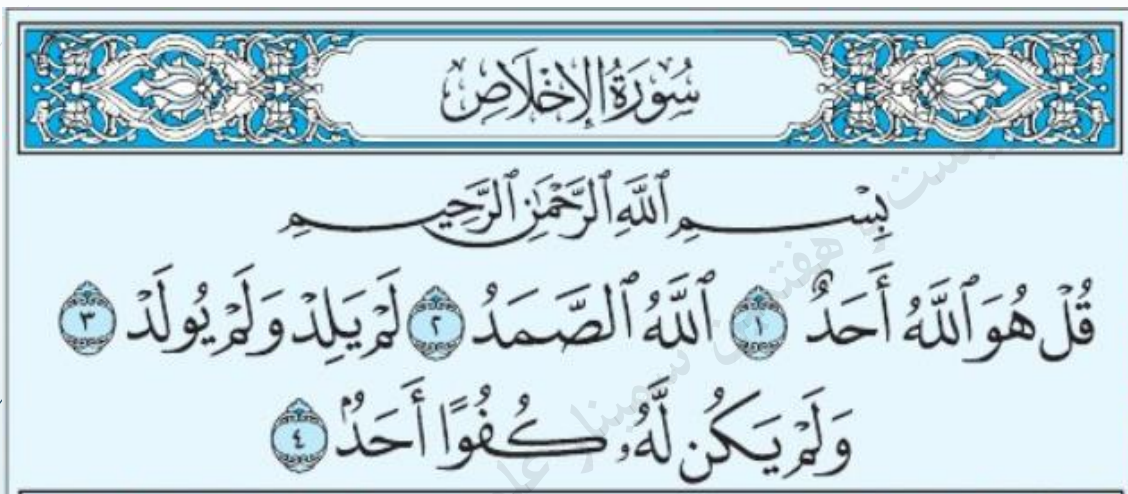 سُورَةُ الإِخْلَاصِ
بِسْمِ ٱللَّهِ ٱلرَّحْمَٰنِ ٱلرَّحِيمِ
قُلْ هُوَ ٱللَّهُ أَحَدٌ ١ ٱللَّهُ ٱلصَّمَدُ ٢ لَمْ يَلِدْ وَلَمْ يُولَدْ ٣
وَلَمْ يَكُن لَّهُۥ كُفُوًا أَحَدٌۢ ٤
هفتمین سمینار